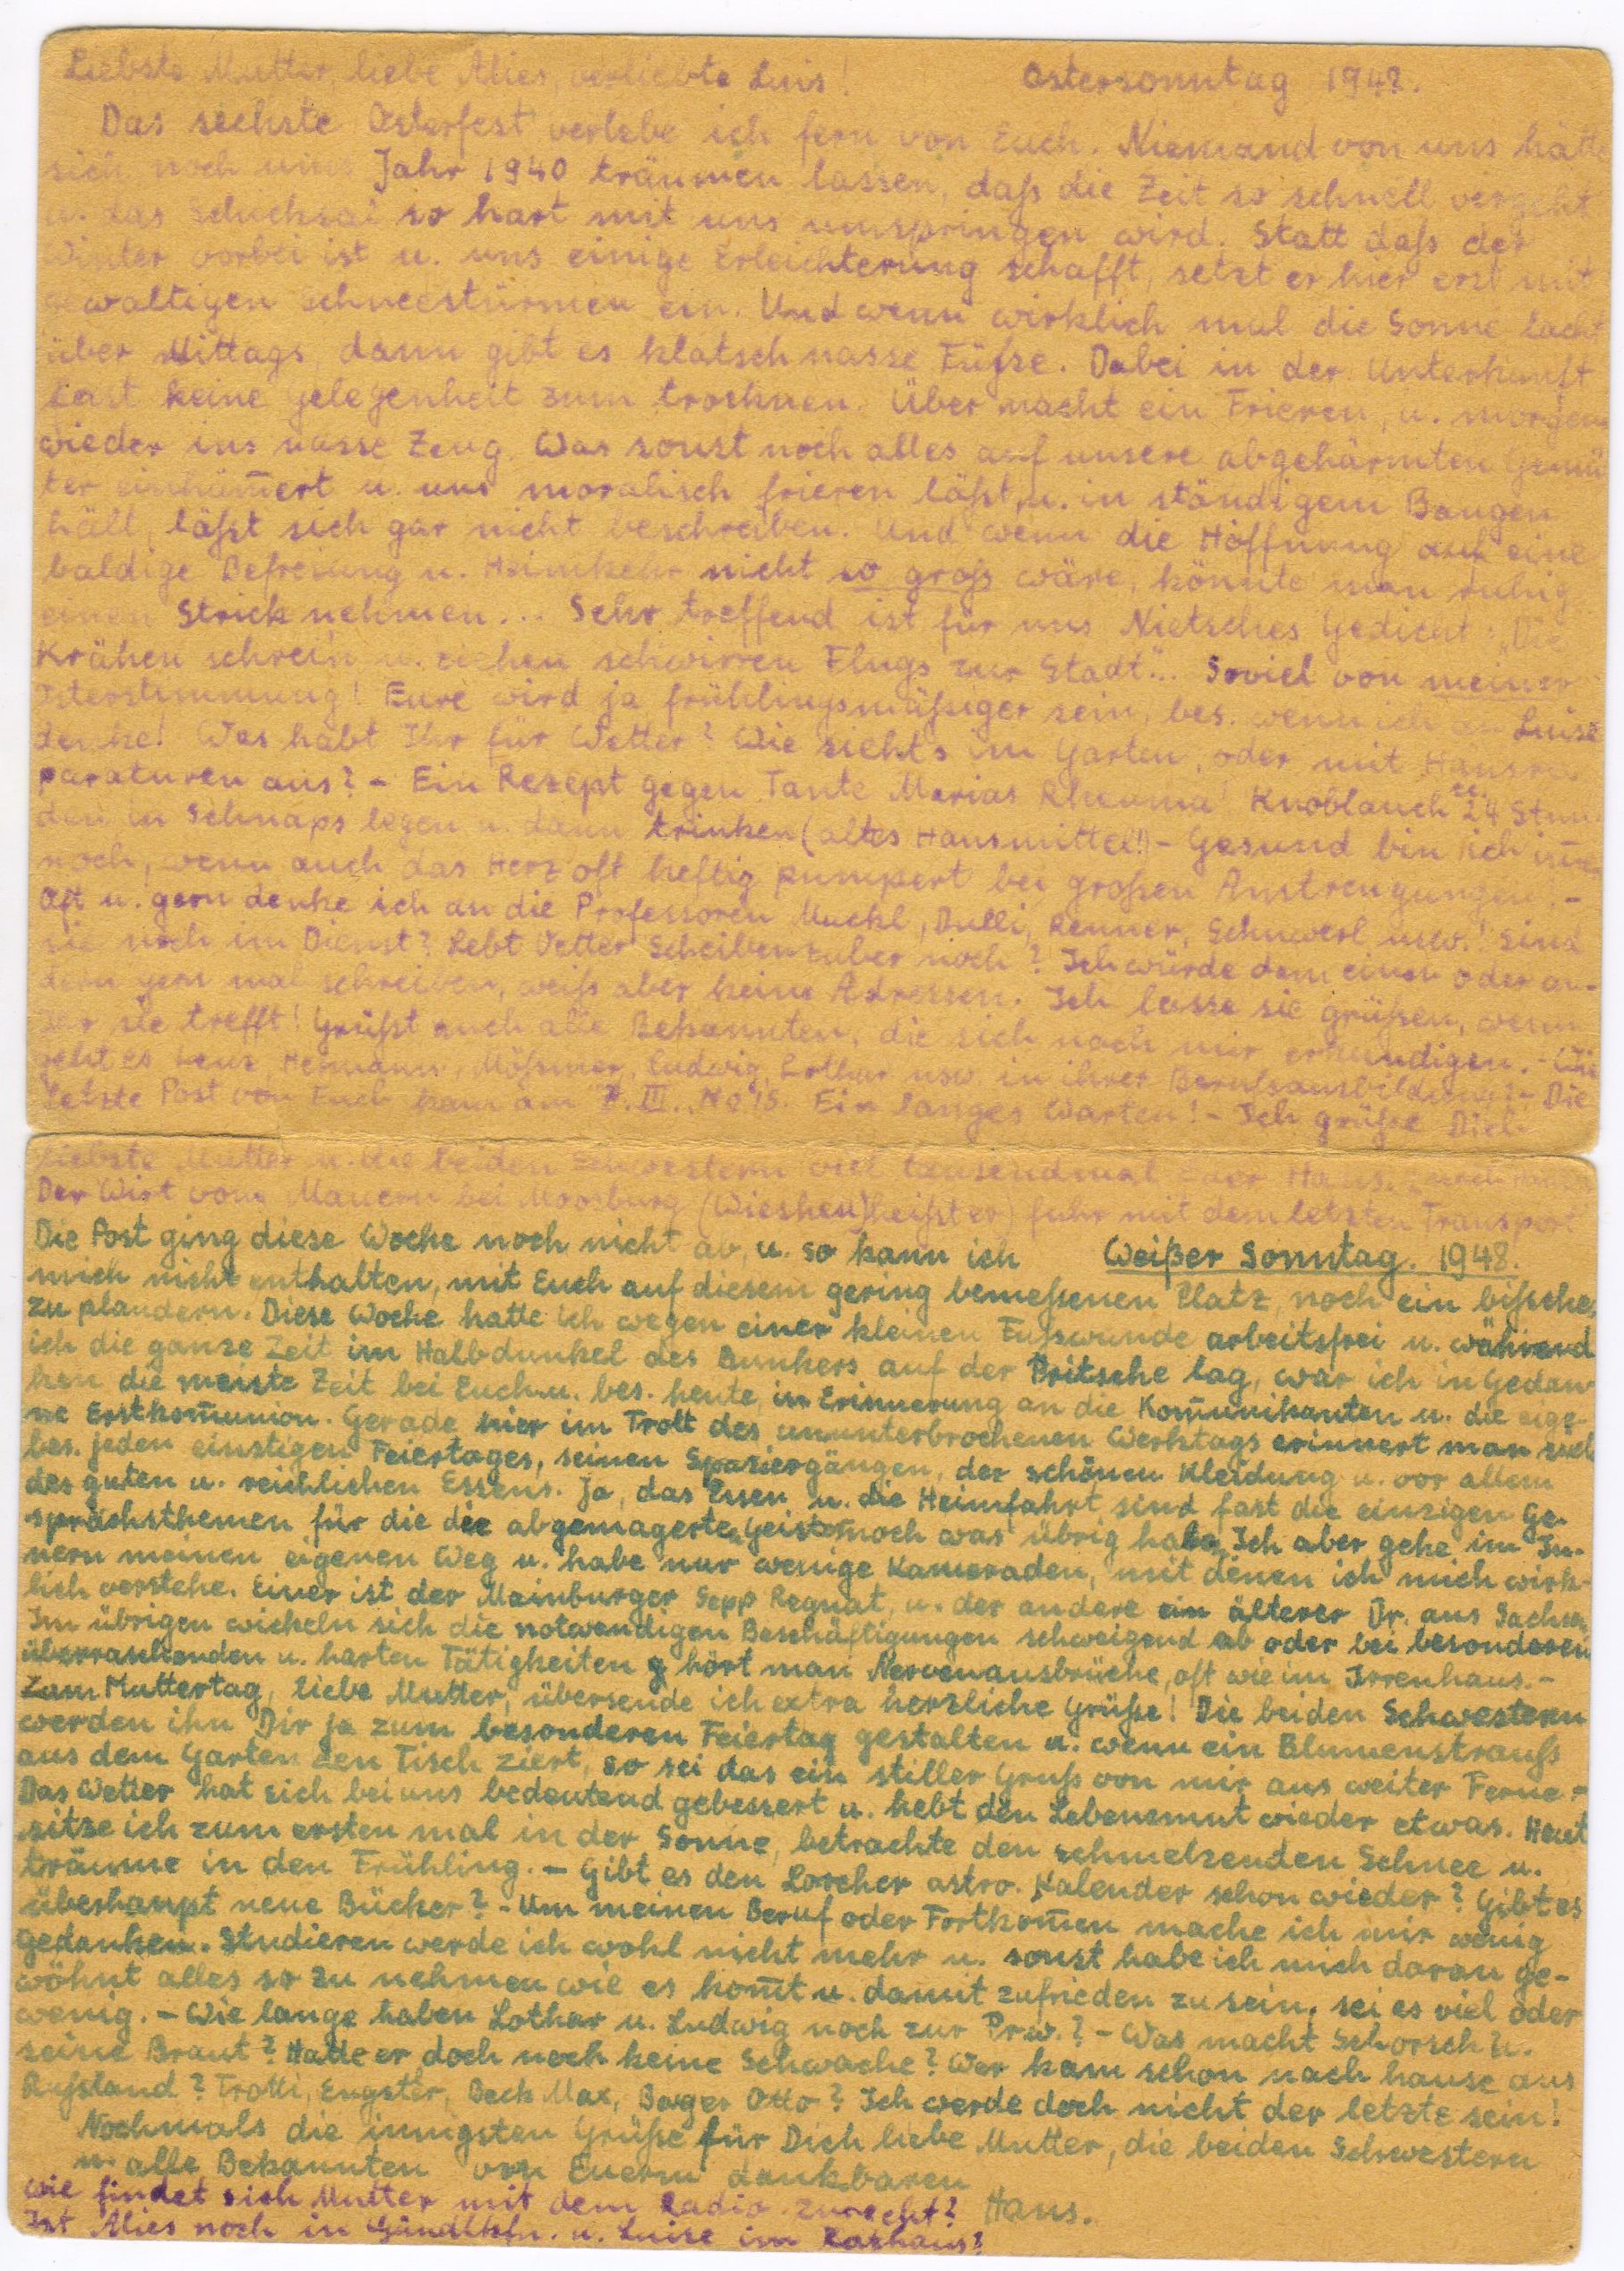 Liebste Mutter, liebe Alies, verliebte Luis! Ostersonntag 1948.
Das sechste Osterfest verlebe ich fern von Euch. Niemand von uns hätte
sich noch ums Jahr 1940 träumen lassen, daß die Zeit so schnell vergeht
u. das Schicksal so hart mit uns umspringen wird. Statt daß der
Winter vorbei ist u. uns einige Erleichterung schafft, setzt er hier erst mit
gewaltigen Schneestürmen ein. Und wenn wirklich mal die Sonne lacht
über Mittags, dann gibt es klatschnasse Füße. Dabei in der Unterkunft
fast keine Gelegenheit zum trocknen. Über nacht ein Frieren, u. morgens
wieder ins nasse Zeug. Was sonst noch alles auf unsere abgehärmten Gemü
ter einhäm̄ert u. uns moralisch frieren läßt, u. in ständigem Bangen
hält, läßt sich gar nicht beschreiben. Und wenn die Hoffnung auf eine
baldige Befreiung u. Heimkehr nicht so groß wäre, könnte man ruhig
einen Strick nehmen... Sehr treffend ist für uns Nietsches Gedicht: „Die
Krähen schrein u. ziehen schwirren Flugs zur Stadt"... Soviel von meiner
Osterstimmung! Eure wird ja frühlingsmäßiger sein, bes. wenn ich an Luise
denke! Was habt Ihr für Wetter? Wie sieht's im Garten, oder mit Hausre
paraturen aus? - Ein Rezept gegen Tante Marias Rheuma! Knoblauch ca. 24 Stun
den in Schnaps legen u. dann trinken (altes Hausmittel!) - Gesund bin ich im̄er
noch, wenn auch das Herz oft heftig pumpert bei großen Anstrengungen! -
Oft u. gern denke ich an die Professoren Muckl, Dulli, Renner, Schnerl usw.! Sind
sie noch im Dienst? Lebt Vetter Scheibenzuber noch? Ich würde dem einen oder an-
dern gern mal schreiben, weiß aber keine Adressen. Ich lasse sie grüßen, wenn
Ihr sie trefft! Grüßt auch alle Bekannten, die sich nach mir erkundigen. - Wie
geht es Lenz, Hermann, Mößmer, Ludwig, Lothar usw. in ihrer Berufsausbildung? - Die
letzte Post von Euch kam am 7. III. No 15. Ein langes Warten! - Ich grüße Dich
liebste Mutter u. die beiden Schwestern viel tausendmal Euer Hans.
Der Wirt von Mauern bei Moosburg (Wiesheu heißt er) fuhr mit dem letzten Transport
Die Post ging diese Woche noch nicht ab, u. so kann ich Weißer Sonntag. 1948.
mich nicht enthalten, mit Euch auf diesem gering bemeßenen Platz, noch ein bißchen
zu plaudern. Diese Woche hatte ich wegen einer kleinen Fußwunde arbeitsfrei u. während
ich die ganze Zeit im Halbdunkel des Bunkers auf der Pritsche lag, war ich in Gedan
ken die meiste Zeit bei Euch u. bes. heute, in Erinnerung an die Kom̄unikanten u. die eige-
ne Erstkom̄union. Gerade hier im Trott des ununterbrochenen Werktags erinnert man sich
bes. jeden einstigen Feiertages, seinen Spaziergängen, der schönen Kleidung u. vor allem
des guten u. reichlichen Essens. Ja, das Essen u. die Heimfahrt sind fast die einzigen Ge-
sprächsthemen für die die abgemagerte Geister noch was übrig haben. Ich aber gehe im In-
nern meinen eigenen Weg u. habe nur wenige Kameraden, mit denen ich mich wirk-
lich verstehe. Einer ist der Mainburger Sepp Regnat, u. der andere ein älterer Dr. aus Sachsen
Im übrigen wickeln sich die notwendigen Beschäftigungen schweigend ab oder bei besonderen
überraschenden u. harten Tätigkeiten hört man Nervenausbrüche, oft wie im Irrenhaus. -
Zum Muttertag, liebe Mutter, übersende ich extra herzliche Grüße! Die beiden Schwestern
werden ihn Dir ja zum besonderen Feiertag gestalten u. wenn ein Blumenstrauß
aus dem Garten den Tisch ziert, so sei das ein stiller Gruß von mir aus weiter Ferne. -
Das Wetter hat sich bei uns bedeutend gebessert u. hebt den Lebensmut wieder etwas. Heut
sitze ich zum ersten mal in der Sonne, betrachte den schmelzenden Schnee u.
träume in den Frühling. - Gibt es den Lorcher astro. Kalender schon wieder? Gibt es
überhaupt neue Bücker? - Um meinen Beruf oder Fortkom̄en mache ich mir wenig
Gedanken. Studieren werde ich wohl nicht mehr u. sonst habe ich mich daran ge-
wöhnt alles so zu nehmen wie es kom̄t u. damit zufrieden zu sein, sei es viel oder
wenig. - Wie lange haben Lothar u. Ludwig noch zur Prw.? - Was macht Schorsch u.
seine Braut? Hatte er doch noch keine Schwache? Wer kam schon nach hause aus
Rußland? Trotti, Engster, Beck Max, Berger Otto? Ich werde doch nicht der letzte sein!
Nochmals die innigsten Grüße für Dich liebe Mutter, die beiden Schwestern
u. alle Bekannten von Euerm dankbaren
Hans.
Wie findet sich Mutter mit dem Radio zurecht?
Ist Alies noch in Gündlkfn. u. Luise im Rathaus?